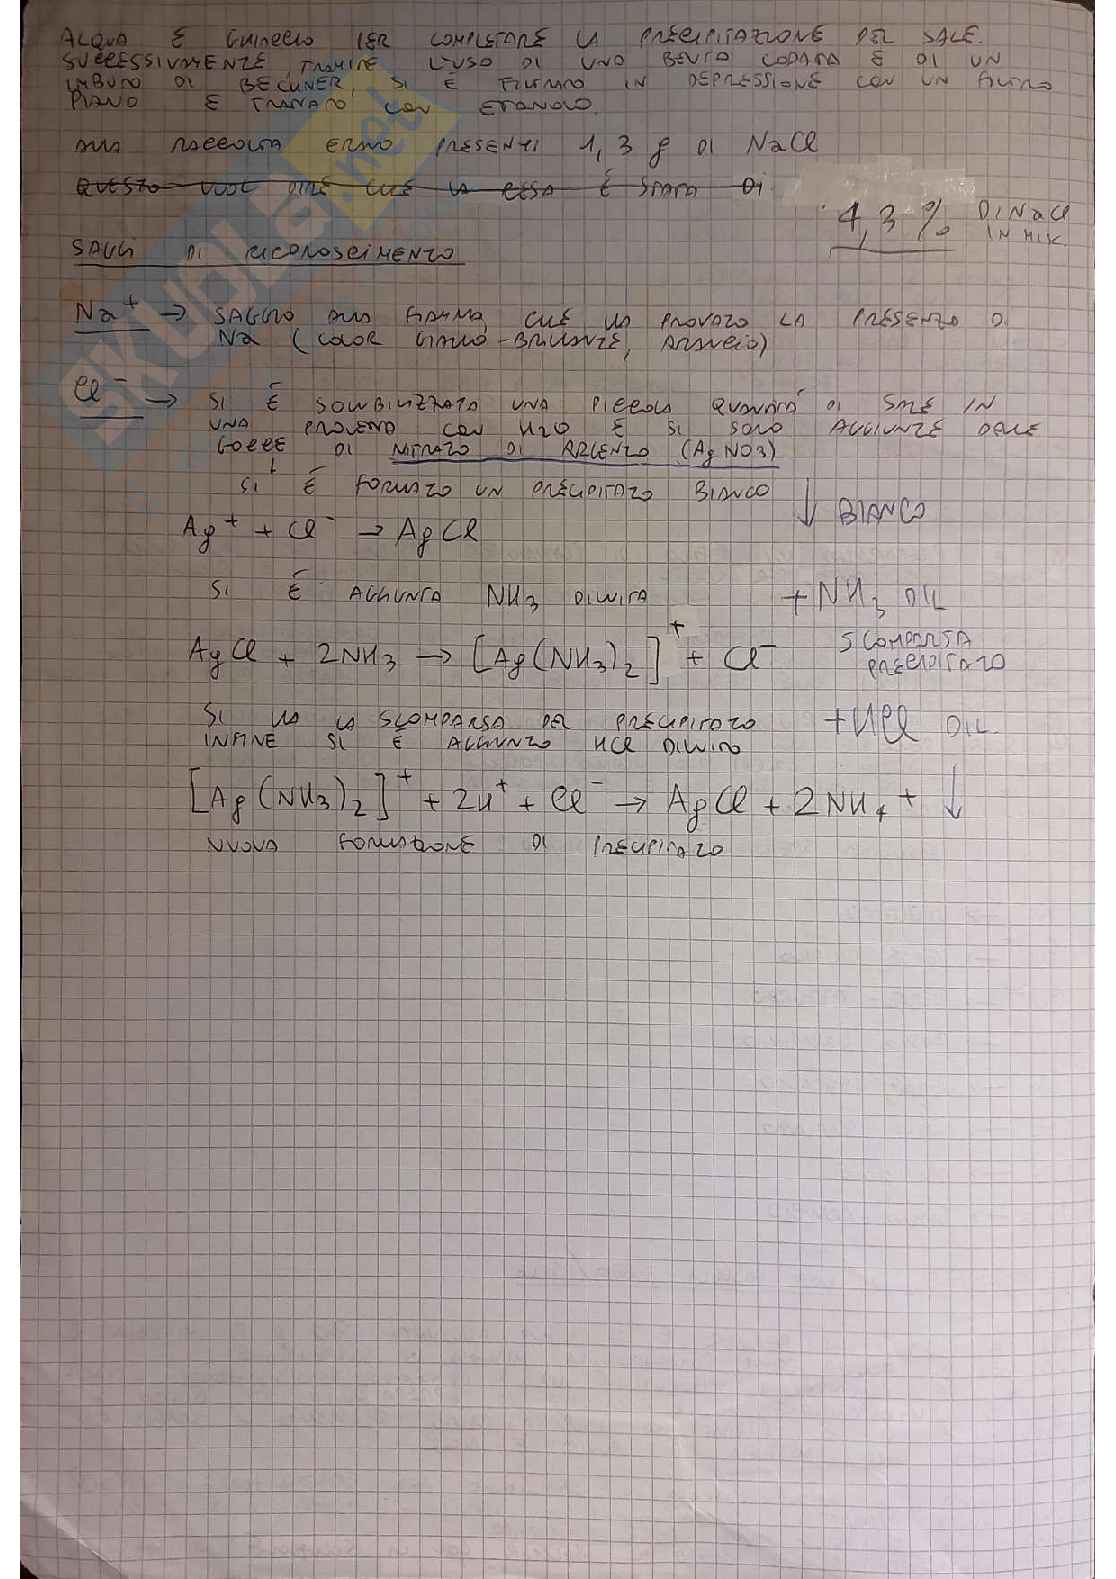 ACQUA E GHIACCIO PER COMPLETARE LA PRECIPITAZIONE DEL SALE.
SUCCESSIVAMENTE, TRAMITE L'USO DI UNA BEUTA CODATA E DI UN
IMBUTO DI BECUNER, SI È FILTRATO IN DEPRESSIONE CON UN FILTRO
PIANO E LAVATO CON ETANOLO.
ALLA RACCOLTA ERANO PRESENTI 1,3 g DI NaCl
QUESTO VUOL DIRE CHE LA RESA È STATA DI
4,3 % DI NaCl
IN MIX
SAGGI DI RICONOSCIMENTO
Na+ → SAGGIO ALLA FIAMMA, CHE HA PROVATO LA PRESENZA DI
Na (COLOR GIALLO-BRILLANTE, ARANCIO)
Cl- → SI È SOLUBILIZZATA UNA PICCOLA QUANTITÀ DI SALE IN
UNA PROVETTA CON H2O E SI SONO AGGIUNTE DELLE
GOCCE DI NITRATO DI ARGENTO (AgNO3)
↓
SI È FORMATO UN PRECIPITATO BIANCO
↓ BIANCO
Ag+ + Cl- → AgCl
SI È AGGIUNTA NH3 DILUITA
+ NH3 DIL
AgCl + 2NH3 → [Ag(NH3)2]+ + Cl-
SCOMPARSA
PRECIPITATO
SI HA LA SCOMPARSA DEL PRECIPITATO
+ HCl DIL.
INFINE SI È AGGIUNTO HCl DILUITO
[Ag(NH3)2]+ + 2H+ + Cl- → AgCl + 2NH4+ ↓
NUOVA FORMAZIONE DI PRECIPITATO
SKUOLA.net